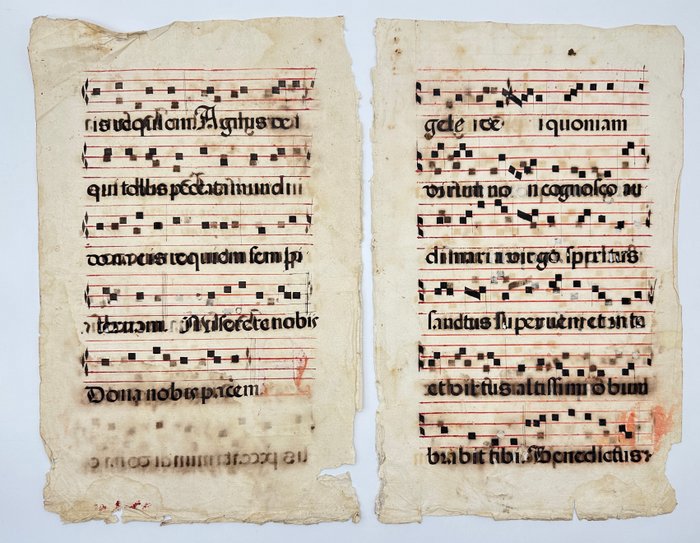 is requiem. Agnus dei
qui tollis peccata mundi
dona eis requiem sempi
ternam. Miserere nobis
Dona nobis pacem.
quoniam
virum no n cognosco au
di maria virgo. spiritus
sanctus superveniet in te
et virtus altissimi obum
brabit tibi. Benedictus